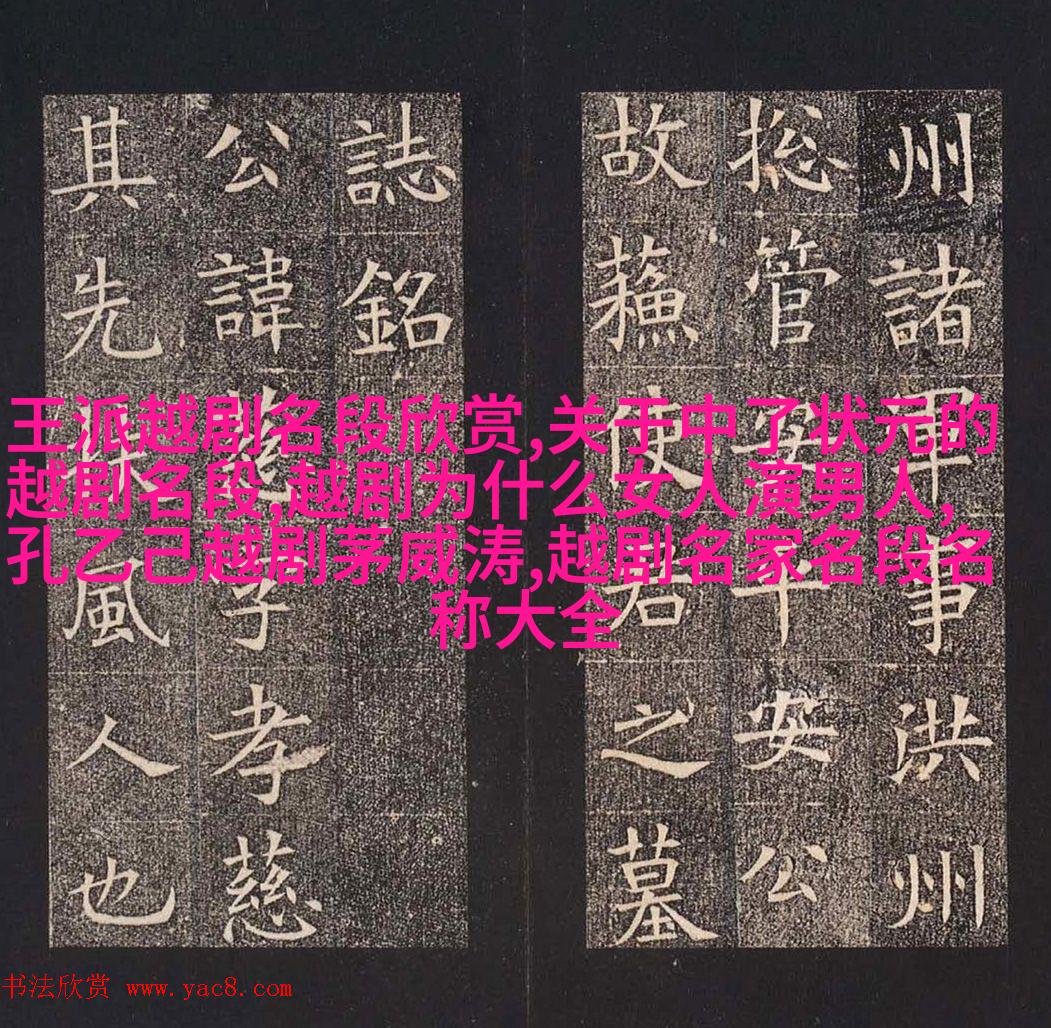 州諸軍事洪州
捴管安平安公
故蘓使君之墓
誌銘
公諱慈字孝慈
其先扶風人也
王派越剧名段欣赏,关于中了状元的
越剧名段,越剧为什么女人演男人,
孔乙己越剧茅威涛,越剧名家名段名
称大全
书法欣赏 www.yac8.com